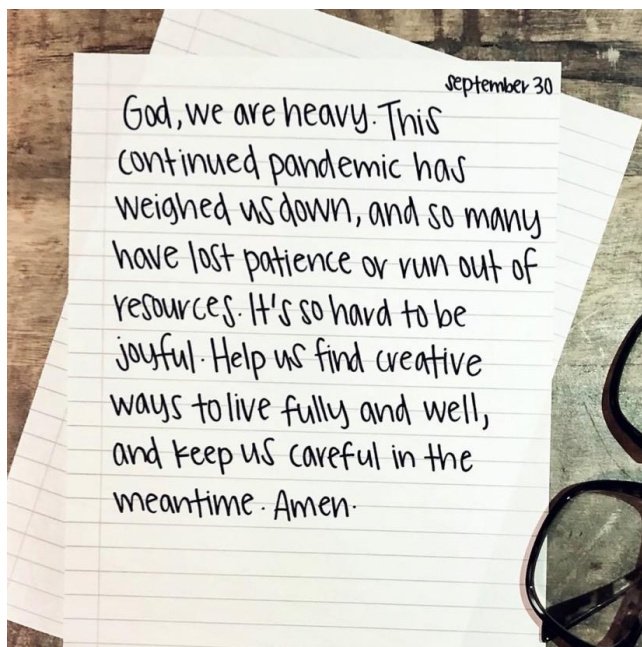 september 30
God, we are heavy. This
continued pandemic has
weighed us down, and so many
have lost patience or run out of
resources. It's so hard to be
joyful. Help us find creative
ways to live fully and well,
and keep us careful in the
meantime. Amen.